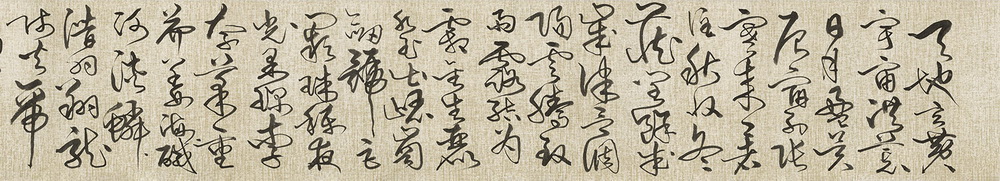 天地玄黃
宇宙洪荒
日月盈昃
辰宿列張
寒來暑
往秋收冬
藏閏餘成
歲律呂調
陽雲騰致
雨露結為
霜金生麗
水玉出崑岡
劍號巨
闕珠稱夜
光果珍李
柰菜重
芥薑海鹹
河淡鱗
潛羽翔龍
師火帝